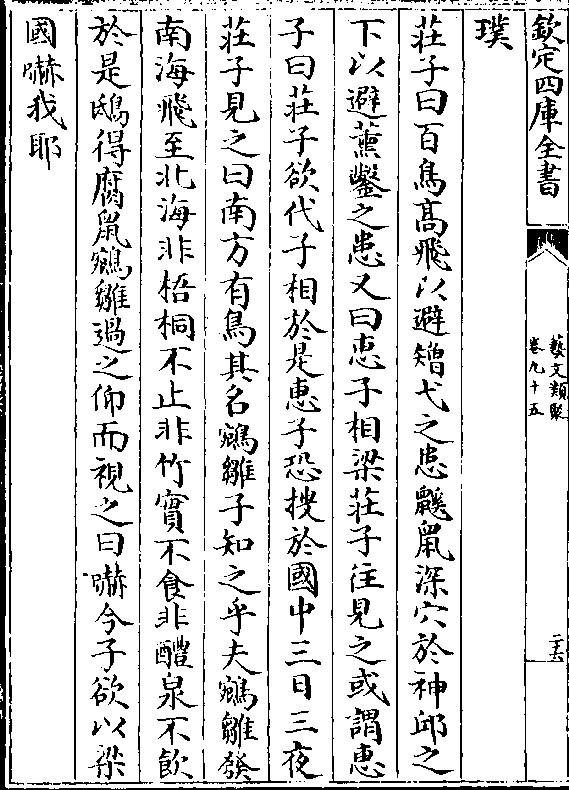 欽定四庫全書
藝文類聚
卷九十五
二六
璞
莊子曰百鳥高飛以避矰弋之患鼷鼠深穴於神邱之
下以避薰鑿之患又曰惠子相梁莊子往見之或謂惠
子曰莊子欲代子相於是惠子恐搜於國中三日三夜
莊子見之曰南方有鳥其名鵷雛子知之乎夫鵷雛發
南海飛至北海非梧桐不止非竹實不食非醴泉不飲
於是鴟得腐鼠鵷雛過之仰而視之曰嚇今子欲以梁
國嚇我耶